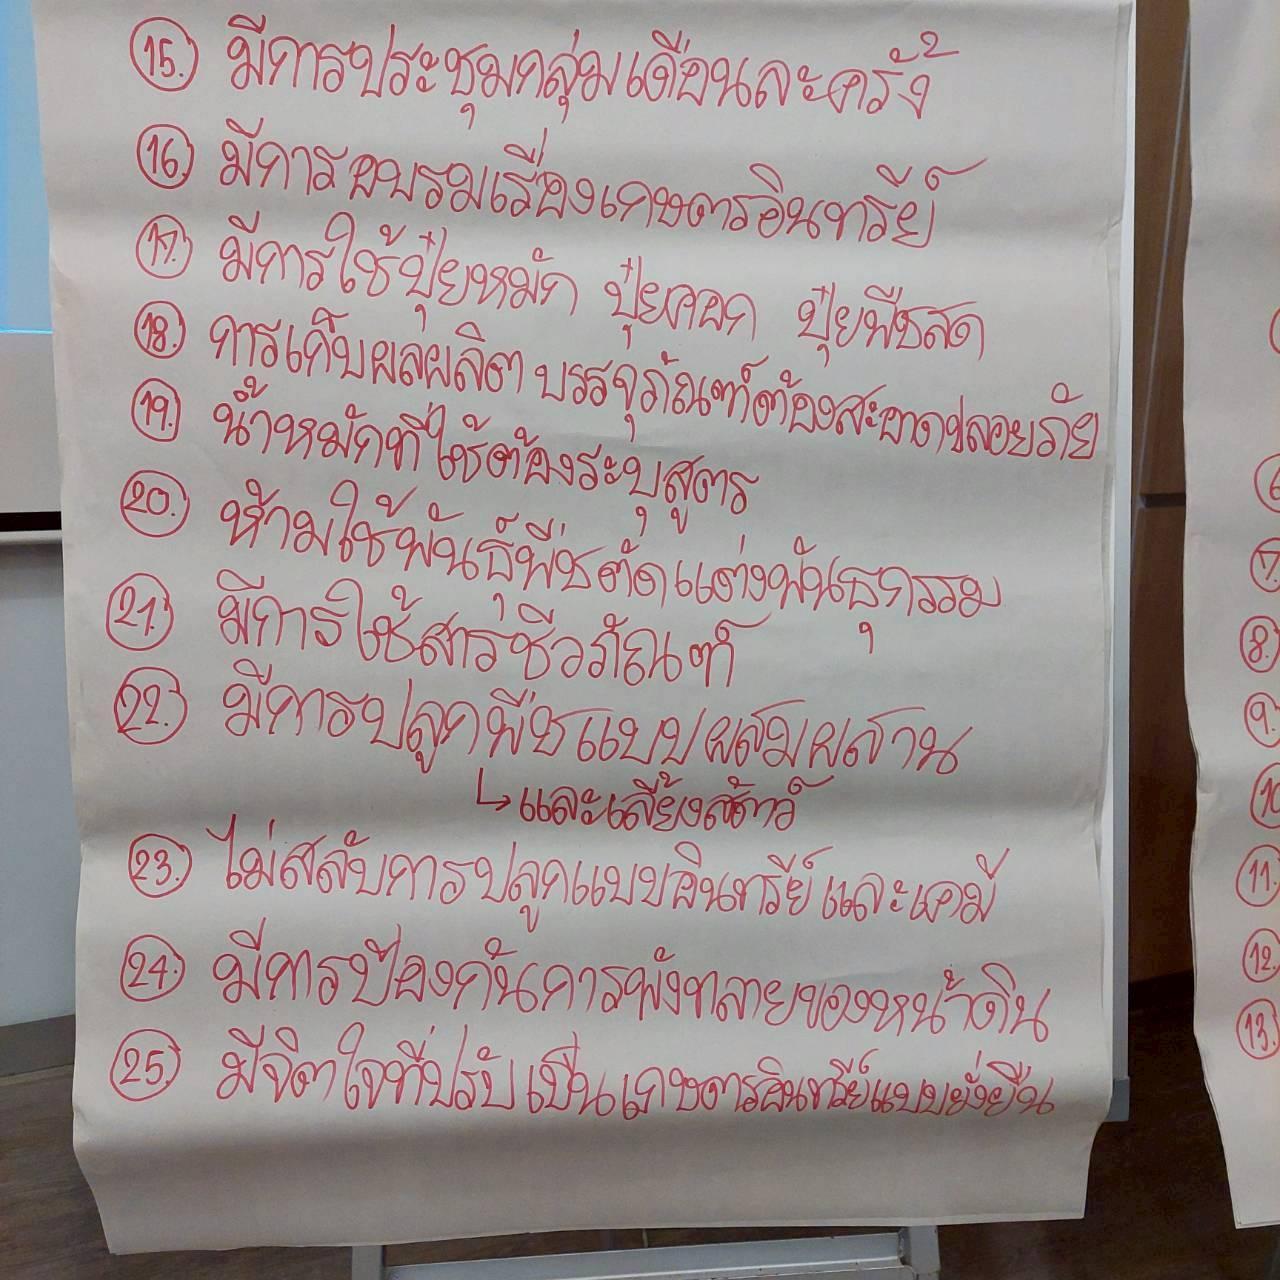 15. มีการประชุมกลุ่มเดือนละครั้ง
16. มีการอบรมเรื่องเกษตรอินทรีย์
17. มีการใช้ปุ๋ยหมัก ปุ๋ยคอก ปุ๋ยพืชสด
18. การเก็บผลผลิต บรรจุภัณฑ์ต้องสะอาดปลอยภัย
19. น้ำหมักที่ใช้ต้องระบุสูตร
20. ห้ามใช้พันธุ์พืชตัดแต่งพันธุกรรม
21. มีการใช้สารชีวภัณฑ์
22. มีการปลูกพืชแบบผสมผสาน
↳ และเลี้ยงสัตว์
23. ไม่สลับการปลูกแบบอินทรีย์และเคมี
24. มีการป้องกันการพังทลายของหน้าดิน
25. มีจิตใจที่ปรับเป็นเกษตรอินทรีย์แบบยั่งยืน
6
7.
8.
9.
10
11.
12.
13.